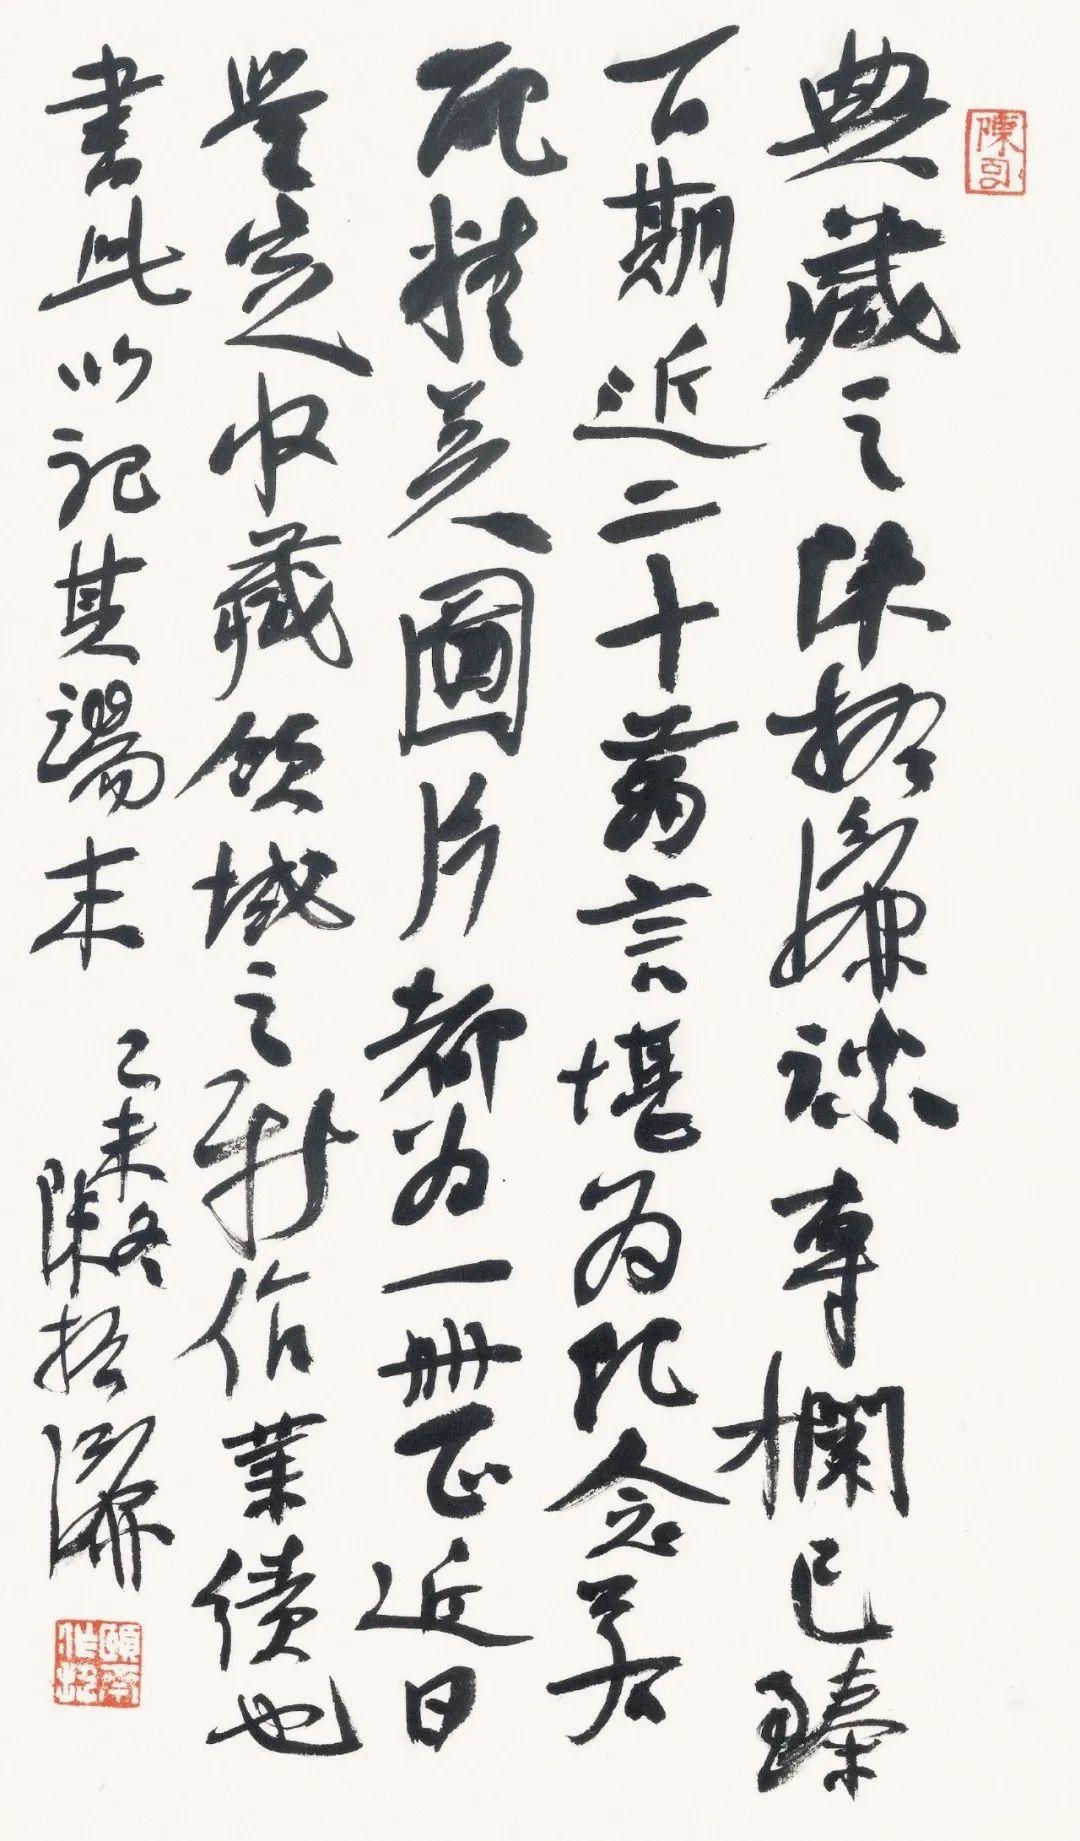 典藏之陳振濂談專欄已臻
百期近二十萬言堪為紀念若
配精美圖片都為一冊正近日
豐定之收藏領域之新作業績也
書此以記其濫末
乙未冬
陳振濂